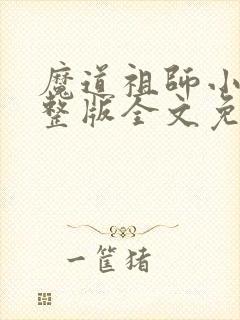 魔道祖師小
整版全文免
一筐猪